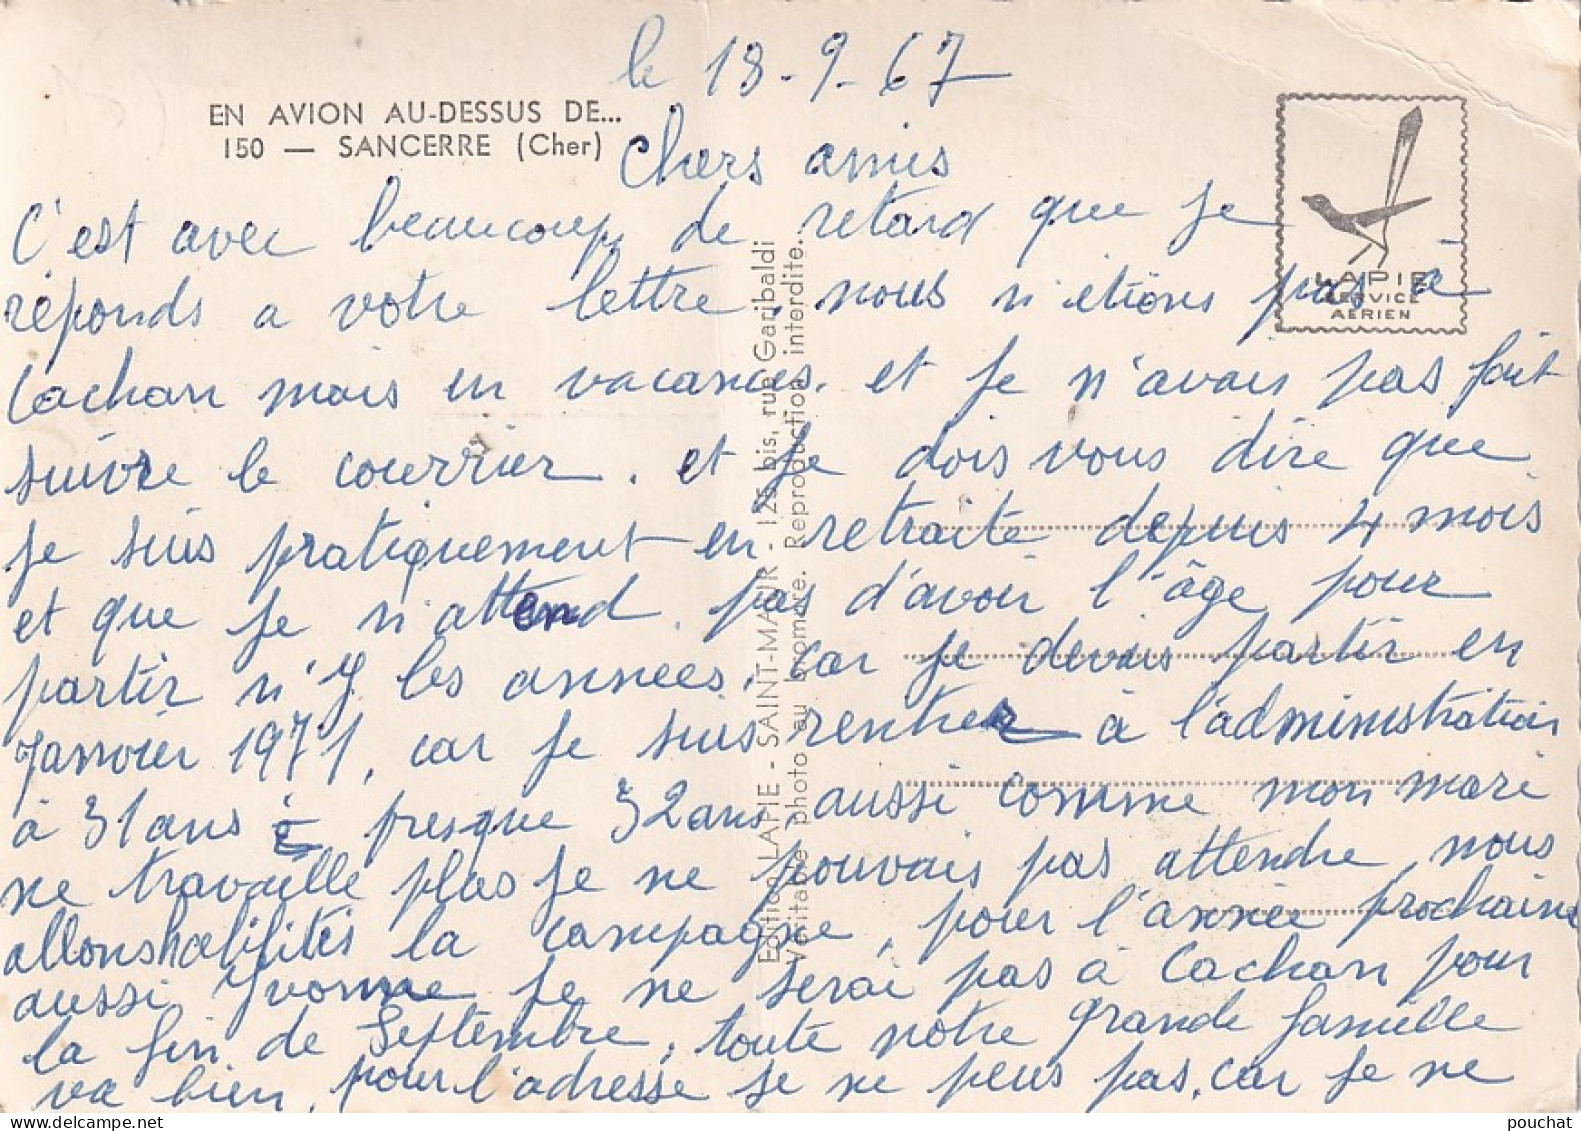 le 13-9-67
EN AVION AU-DESSUS DE...
150 — SANCERRE (Cher)
Chers amis
C'est avec beaucoup de retard que je
réponds a votre lettre, nous n'etions pas à
Cachan mais en vacances. et je n'avais pas fait
suivre le courrier. et je dois vous dire que
je suis pratiquement en retraite depuis 4 mois
et que je n'attend pas d'avoir l'âge pour
partir n'y les annees. car je devais partir en
Janvier 1971, car je suis rentrer à l'administration
à 31 ans presque 32 ans, aussi comme mon mari
ne travaille plus je ne pouvais pas attendre, nous
allons habités la campagne, pour l'année prochaine
aussi Yvonne je ne serai pas à Cachan pour
la fin de Septembre, toute notre grande famille
va bien, pour l'adresse je ne peus pas, car je ne
LAPIE
SERVICE
AERIEN
Edition LAPIE - SAINT-MAUR - 125 bis, rue Garibaldi
Véritable photo au bromure. Reproduction interdite.
www.delcampe.net
pouchat